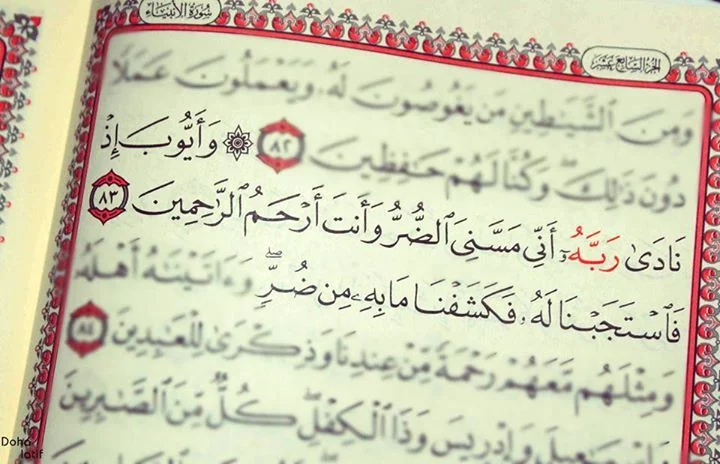 سُورَةُ الأَنْبِيَاءِ
الجُزْءُ السَّابِعَ عَشَرَ
وَمِنَ ٱلشَّيَٰطِينِ مَن يَغُوصُونَ لَهُۥ وَيَعْمَلُونَ عَمَلًا
دُونَ ذَٰلِكَۖ وَكُنَّا لَهُمْ حَٰفِظِينَ ٨٢ ۞ وَأَيُّوبَ إِذْ
نَادَىٰ رَبَّهُۥٓ أَنِّي مَسَّنِيَ ٱلضُّرُّ وَأَنتَ أَرْحَمُ ٱلرَّٰحِمِينَ ٨٣
فَٱسْتَجَبْنَا لَهُۥ فَكَشَفْنَا مَا بِهِۦ مِن ضُرٍّۖ وَءَاتَيْنَٰهُ أَهْلَهُۥ
وَمِثْلَهُم مَّعَهُمْ رَحْمَةً مِّنْ عِندِنَا وَذِكْرَىٰ لِلْعَٰبِدِينَ ٨٤
وَإِسْمَٰعِيلَ وَإِدْرِيسَ وَذَا ٱلْكِفْلِۖ كُلٌّ مِّنَ ٱلصَّٰبِرِينَ
Doha
latif